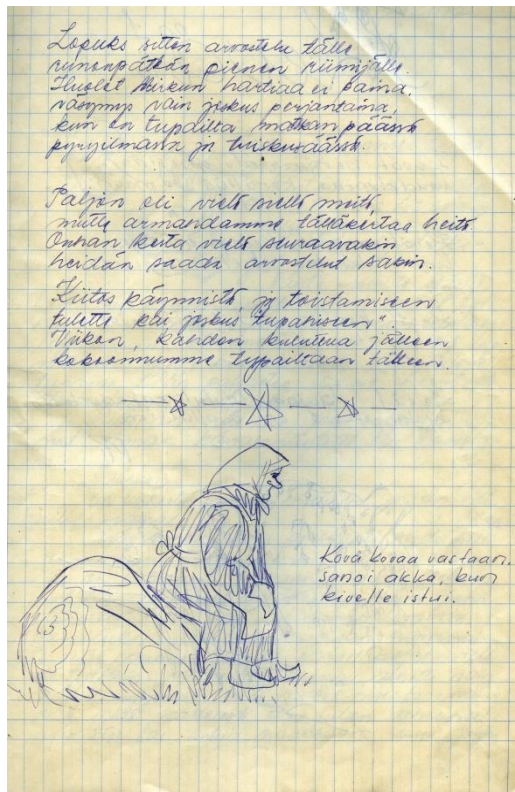 Lopuks sitten arvostelu tälle
runonpätkän pienen riimijälle.
Huolet Mirkun hartiaa ei paina,
väsymys vain joskus perjantaina,
kun on tupailta matkan päässä
pyryilmassa ja tuiskusäässä.
Paljon oli vielä siellä meitä,
mutta armahdamme tälläkertaa heitä
Onhan kerta vielä seuraavakin
heidän saada arvostelut sakin.
Kiitos käynnistä, ja toistamiseen
tulette kai joskus "tupaniseen"
Viikon, kahden kuluttua jälleen
kokoonnumme tupailtaan tälleen.
Kova kovaa vastaan.
sanoi akka, kun
kivelle istui.